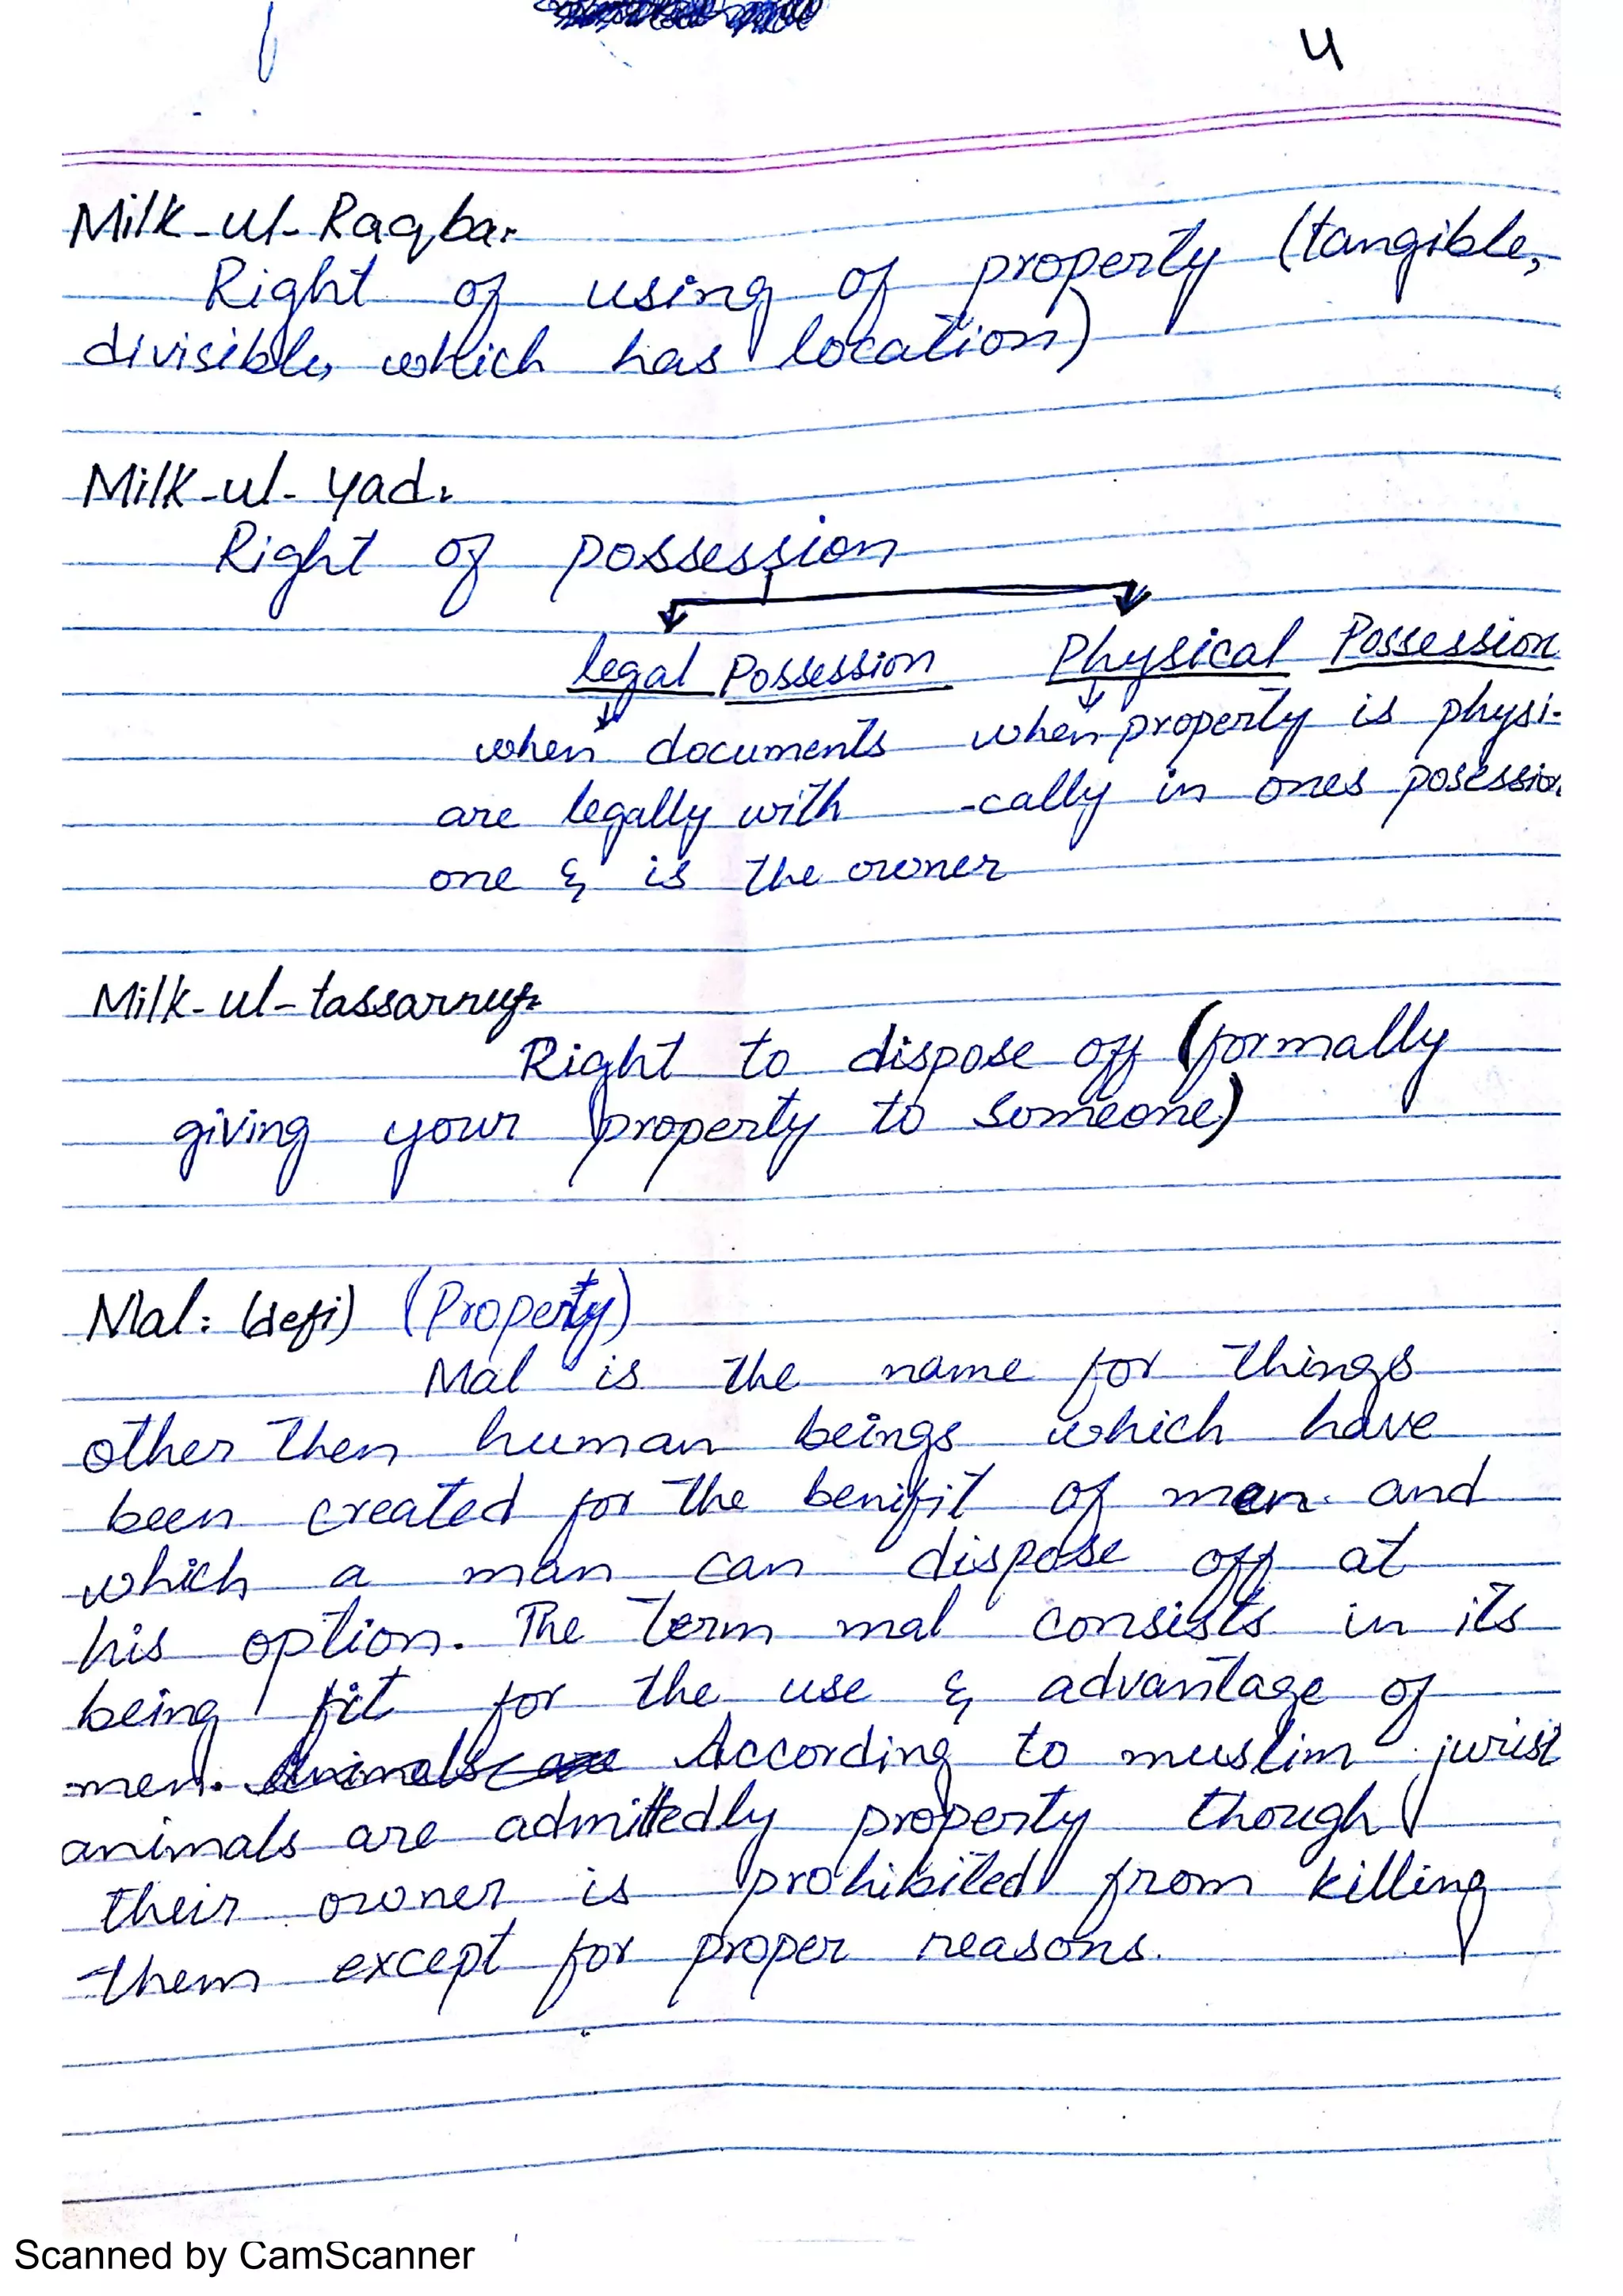 4
Milk-ul-Raqba:
Right of using of property (tangible,
divisible, which has location)
Milk-ul-yad:
Right of possession
legal Possession Physical Possession
when documents when property is physi-
are legally with -cally in ones posession
one & is the owner
Milk-ul-tassarruf:
Right to dispose off (formally
giving your property to someone)
Mal: (defi) (Property)
Mal is the name for things
other then human beings which have
been created for the benifit of men and
which a man can dispose off at
his option. The term mal consists in its
being fit for the use & advantage of
men. According to muslim jurist
animals are admittedly property though
their owner is prohibited from killing
them except for proper reasons.
Scanned by CamScanner